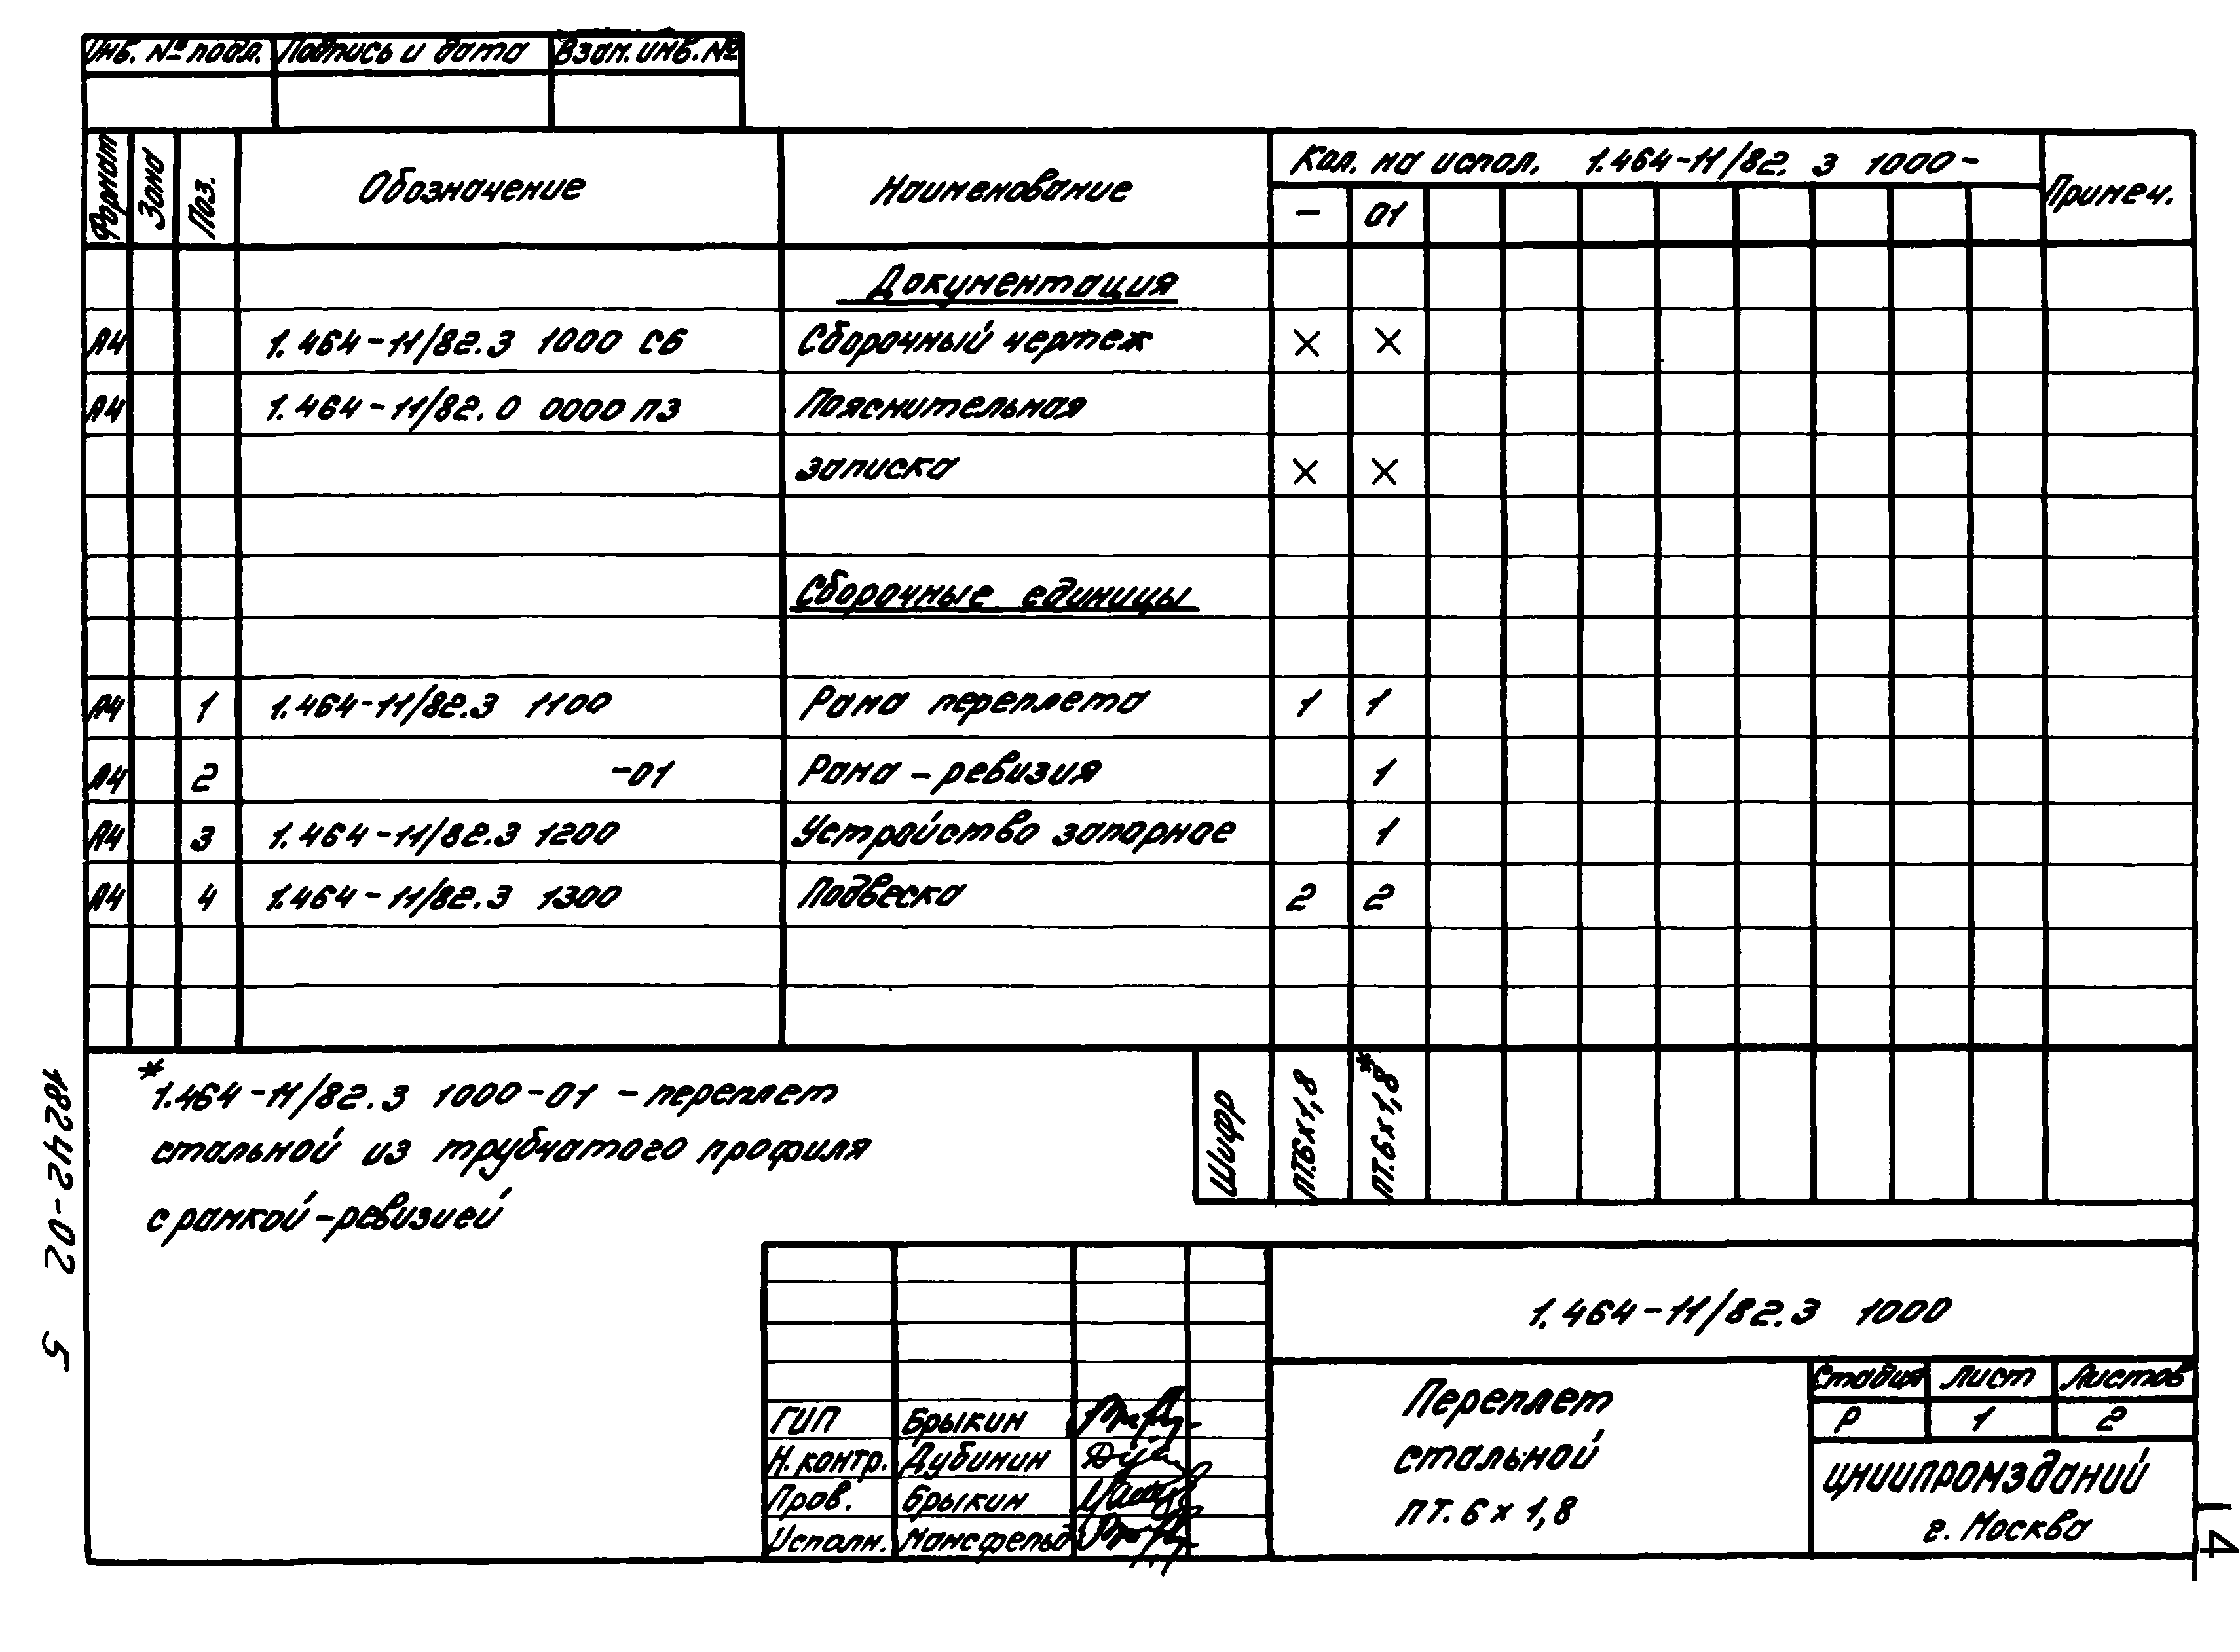 Инв. № подл. Подпись и дата Взам. инв. №
Формат Зона Поз. Обозначение Наименование Кол. на испол. 1.464-11/82.3 1000- Примеч.
- 01
Документация
А4 1.464-11/82.3 1000 СБ Сборочный чертеж × ×
А4 1.464-11/82.0 0000 ПЗ Пояснительная
записка × ×
Сборочные единицы
А4 1 1.464-11/82.3 1100 Рама переплета 1 1
А4 2 -01 Рама-ревизия 1
А4 3 1.464-11/82.3 1200 Устройство запорное 1
А4 4 1.464-11/82.3 1300 Подвеска 2 2
* 1.464-11/82.3 1000-01 - переплет
стальной из трубчатого профиля
с рамкой-ревизией
Шифр ПТ.6х1,8 ПТ.6х1,8*
18242-02 5
1.464-11/82.3 1000
Переплет
стальной
ПТ. 6 х 1,8
Стадия Лист Листов
Р 1 2
ЦНИИПРОМЗДАНИЙ
г. Москва
ГИП Брыкин
Н. контр. Дубинин
Пров. Брыкин
Исполн. Мансфельд
4